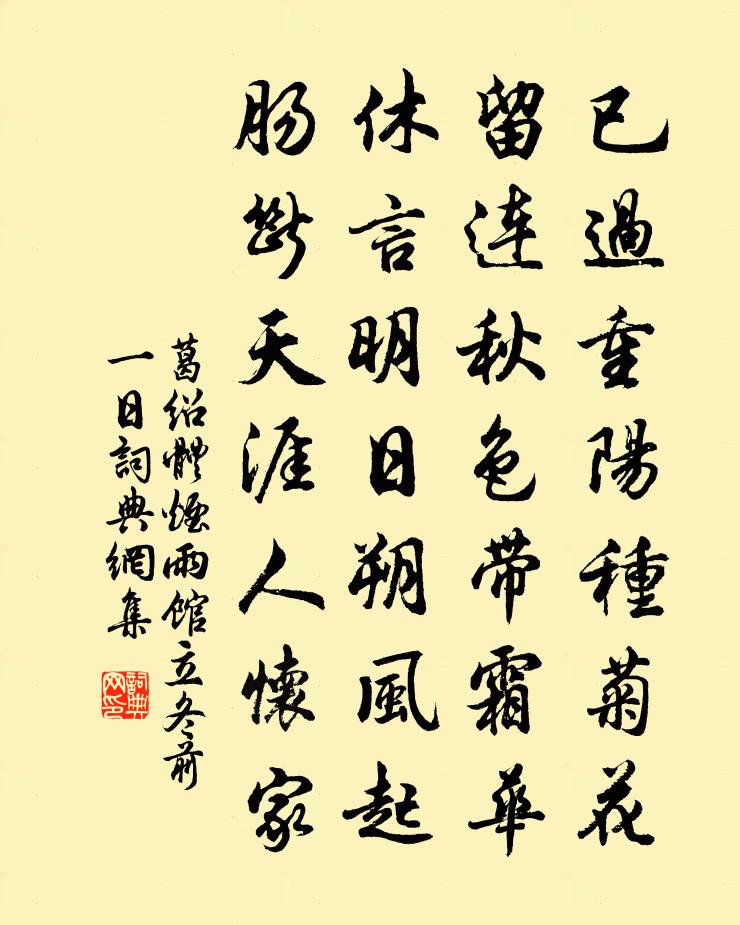 已過重陽種菊花
留連秋色帶霜華
休言明日朔風起
腸斷天涯人懷家
葛紹體煙雨館立冬前
一日詞典網集
詞典
网印